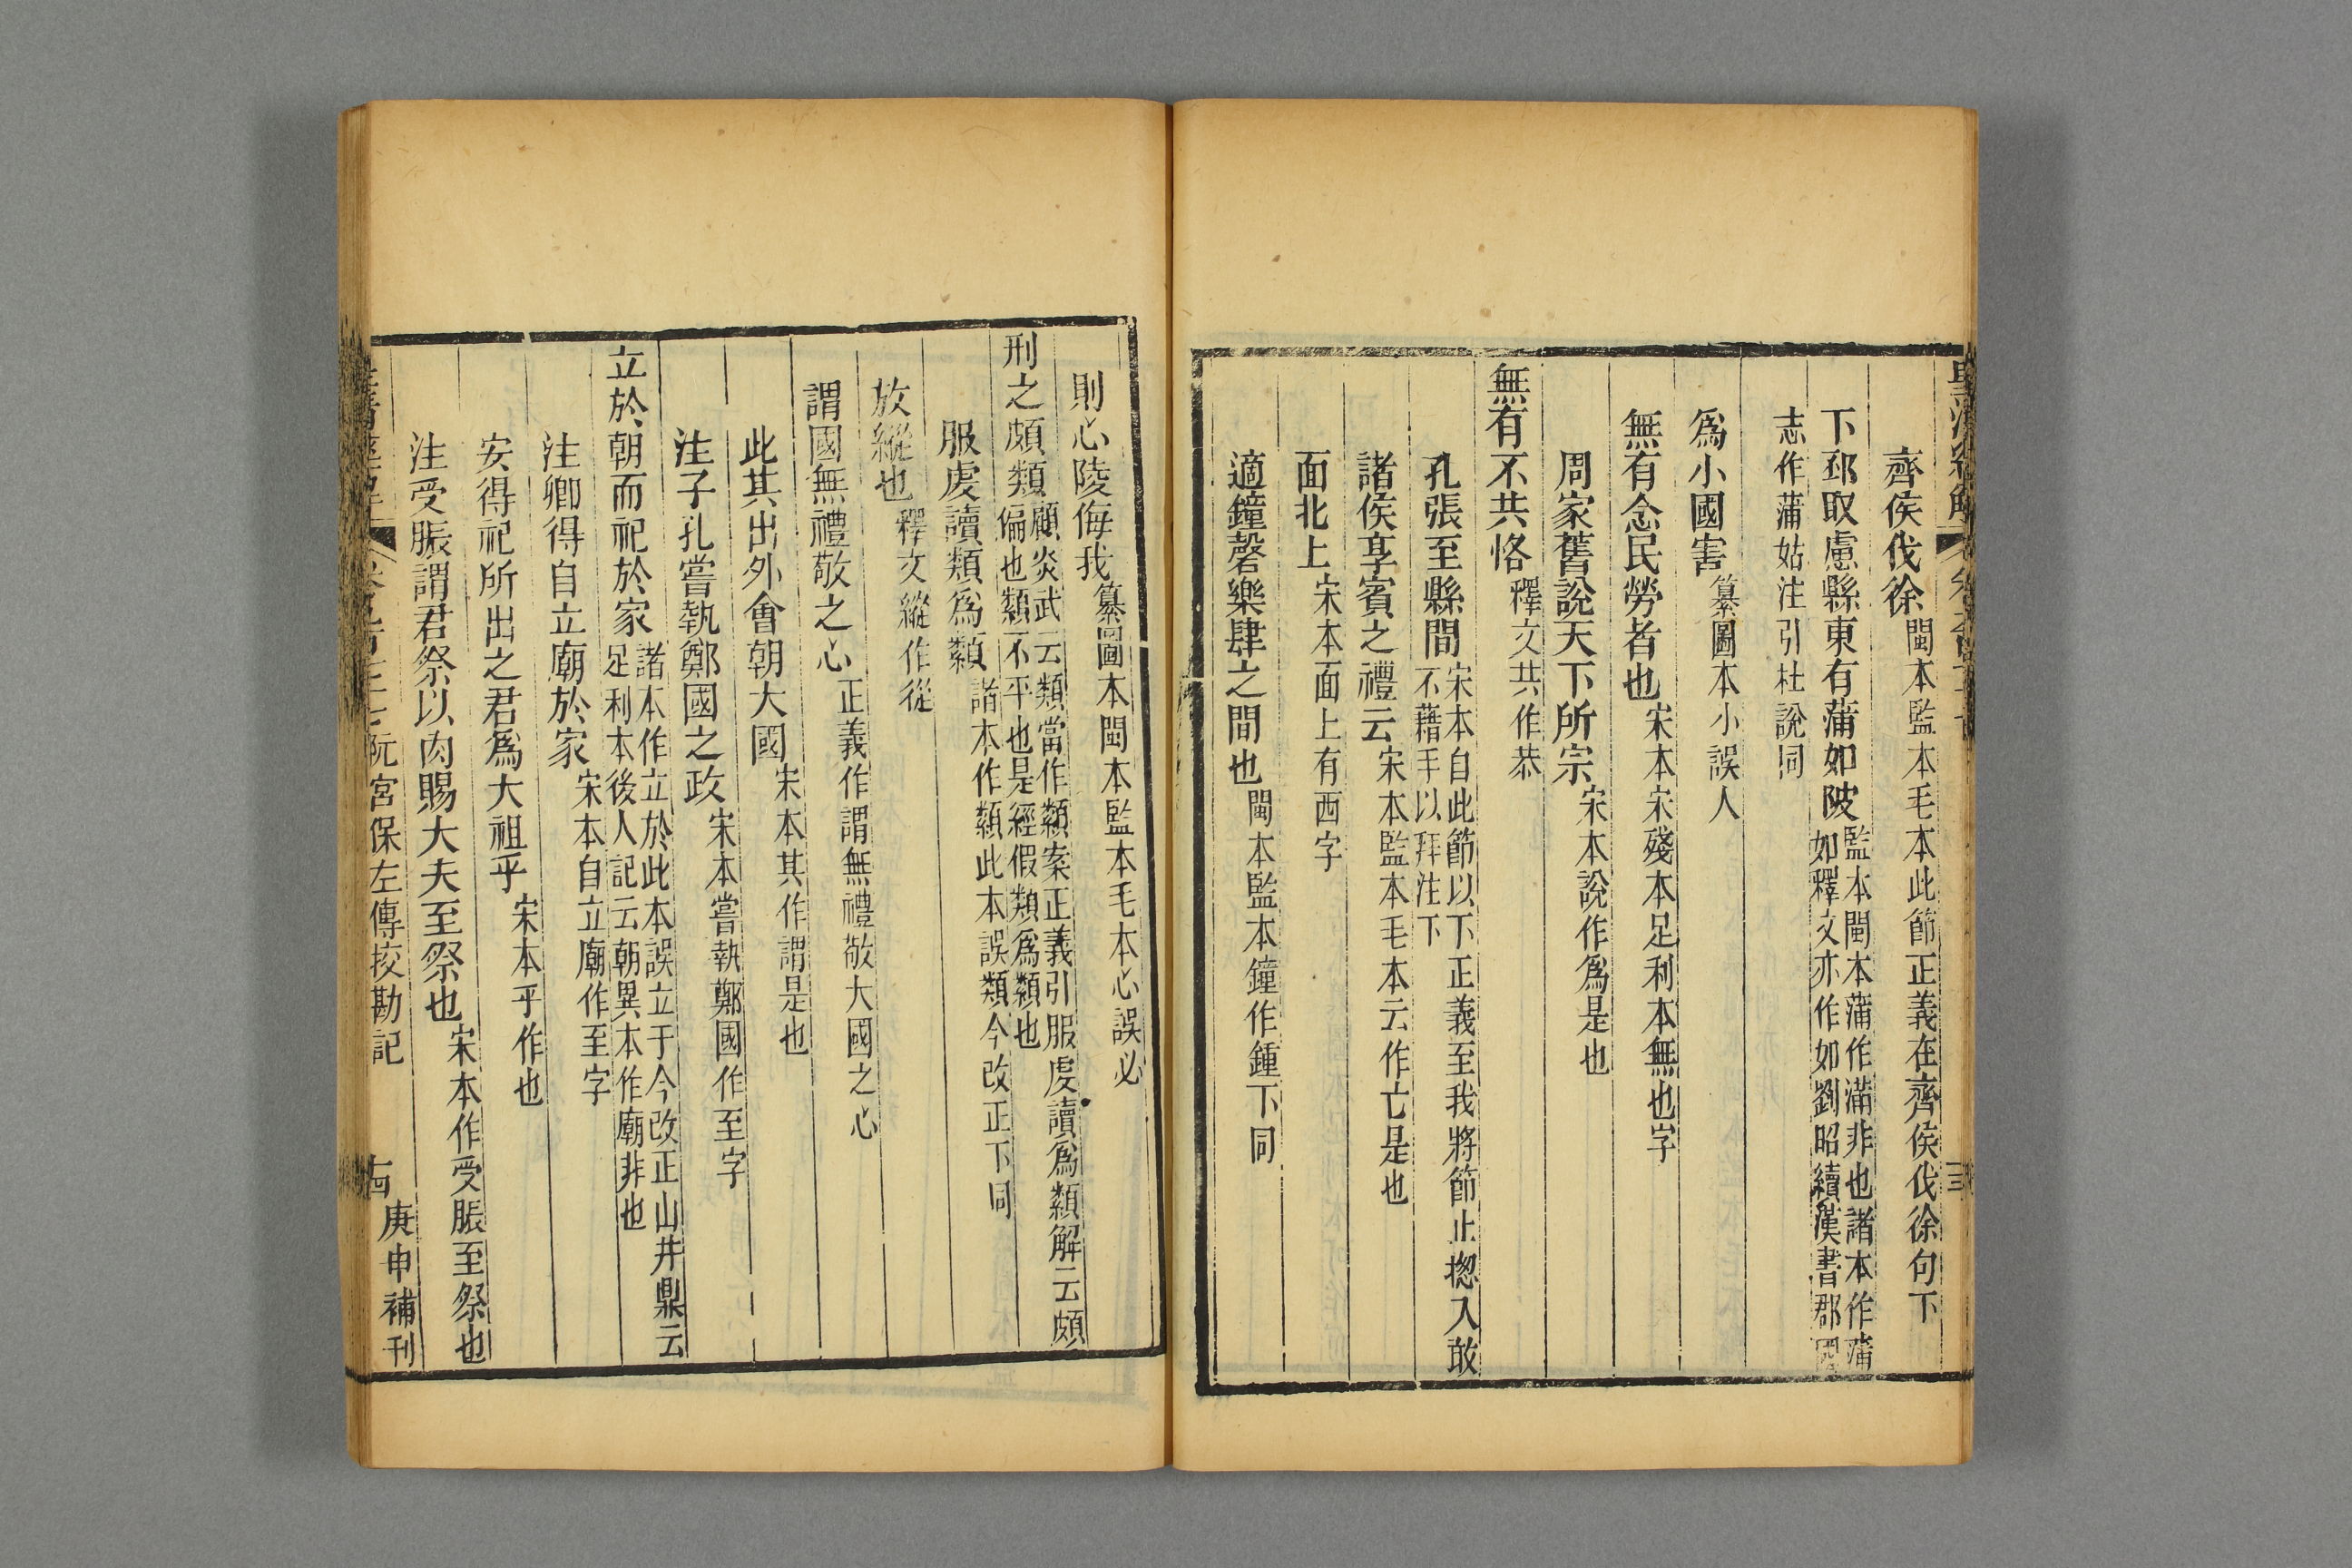 皇清經解
齊侯伐徐閩本監本毛本此節正義在齊侯伐徐句下
下邳取慮縣東有蒲如陂監本閩本蒲作滿非也諸本作蒲
如釋文亦作如劉昭續漢書郡國
志作蒲姑注引杜說同
爲小國害纂圖本小誤人
無有念民勞者也宋本宋殘本足利本無也字
周家舊說天下所宗宋本說作爲是也
無有不共恪釋文共作恭
孔張至縣間宋本自此節以下正義至我將節止揔入敢
不藉手以拜注下
諸侯享賓之禮云宋本監本毛本云作亡是也
面北上宋本面上有西字
適鐘磬樂肆之間也閩本監本鐘作鍾下同
則心陵侮我纂圖本閩本監本毛本心誤必
刑之頗類顧炎武云類當作纇案正義引服虔讀爲類解云頗
偏也纇不平也是經假類爲纇也
服虔讀類爲纇諸本作纇此本誤類今改正下同
放縱也釋文縱作從
謂國無禮敬之心正義作謂無禮敬大國之心
此其出外會朝大國宋本其作謂是也
注子孔嘗執鄭國之政宋本嘗執鄭國作至字
立於朝而祀於家諸本作立於此本誤立于今改正山井鼎云
足利本後人記云朝異本作廟非也
注卿得自立廟於家宋本自立廟作至字
安得祀所出之君爲大祖乎宋本乎作也
注受脤謂君祭以肉賜大夫至祭也宋本作受脤至祭也
阮宮保左傳挍勘記
庚申補刊